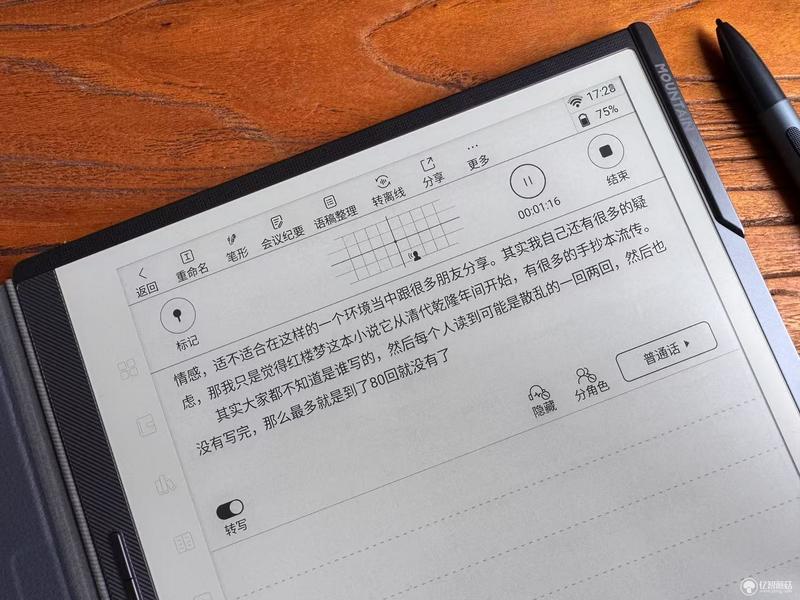 MOUNTAIN
17:28
75%
返回
重命名
笔形
会议纪要
语稿整理
转离线
分享
更多
标记
00:01:16
结束
情感，适不适合在这样的一个环境当中跟很多朋友分享。其实我自己还有很多的疑
虑，那我只是觉得红楼梦这本小说它从清代乾隆年间开始，有很多的手抄本流传。
其实大家都不知道是谁写的，然后每个人读到可能是散乱的一回两回，然后也
没有写完，那么最多就是到了80回就没有了
隐藏
分角色
普通话
转写
亿智蘑菇